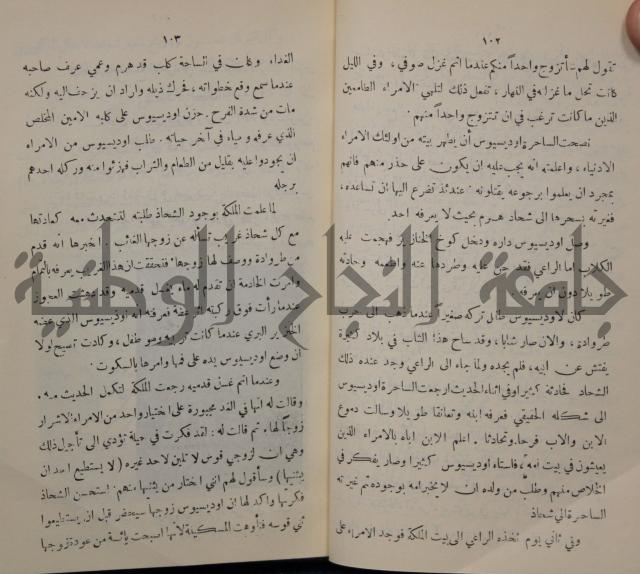 ١٠٢
تقول لهم ـ أتزوج واحداً منكم عندما اتم غزل صوفي ، وفي الليل
كانت تحل ما غزلته في النهار ، تفعل ذلك لتلهي الامراء الطامعين
الذين ما كانت ترغب في ان تتزوج واحداً منهم .
نصحت الساحرة اوديسيوس أن يطهر بيته من اولئك الامراء
الادنياء ، واعلمته انه يجب عليه ان يكون على حذر منهم فانهم
بمجرد ان يعلموا برجوعه يقتلونه . عندئذ تضرع اليها أن تساعده ،
فغيرته بسحرها الى شحاذ هرم بحيث لا يعرفه احد .
وصل اوديسيوس داره ودخل كوخ الخنازير فهجمت عليه
الكلاب اما الراعي فقد حن عليه وطردها عنه واطعمه وحادثه
طويلا دون ان يعرفه
كان لاوديسيوس طفل تركه صغيراً عندما ذهب الى حرب
طروادة ، والان صار شابا ، وقد ساح هذا الشاب في بلاد كثيرة
يفتش عن ابيه ، فلم يجده ولما جاء الى الراعي وجد عنده ذلك
الشحاذ فحادثه كثيرا وفي اثناء الحديث ارجعت الساحرة اوديسيوس
الى شكله الحقيقي فعرفه ابنه وتعانقا طويلا وسالت دموع
الابن والاب فرحا وتحادثا . اعلم الابن اباه بالامراء الذين
يعيشون في بيت امه ، فاستاء اوديسيوس كثيرا وصار يفكر في
الخلاص منهم وطلب من ولده ان لا يخبر امه بوجوده ثم غيرته
الساحرة الى شحاذ
وفي ثاني يوم اخذه الراعي الى بيت الملكة فوجد الامراء على
١٠٣
الغداء وكان في الساحة كلب قد هرم وعمي عرف صاحبه
عندما سمع وقع خطواته ، فحرك ذيله واراد ان يزحف اليه ولكنه
مات من شدة الفرح . حزن اوديسيوس على كلبه الامين المخلص
الذي عرفه وحياه في آخر حياته . طلب اوديسيوس من الامراء
ان يجودوا عليه بقليل من الطعام والشراب فهزئوا منه وركله احدهم
برجله
لما علمت الملكة بوجود الشحاذ طلبته لتتحدث معه كعادتها
مع كل شحاذ غريب تسأله عن زوجها الغائب . اخبرها انه قدم
من طروادة ووصف لها زوجها فتحققت ان هذا الغريب يعرفه بالتمام
وأمرت الخادمة ان تقدم له ماء ليغسل قدميه العجوز
عندما رأت فوق ركبته اثر عضة فعرفته انه اوديسيوس الذي عضه
الخنزير البري عندما كانت تربيه وهو طفل ، وكادت تصيح لولا
ان وضع اوديسيوس يده على فمها وامرها بالسكوت .
وعندما اتم غسل قدميه رجعت الملكة لتكمل الحديث معه .
وقالت له انها في الغد مجبورة على اختيار واحد من الامراء الاشرار
زوجاً لها . ثم قالت له : لقد فكرت في حيلة تؤدي الى تأجيل ذلك
وهي ان لزوجي قوس لا تلين لاحد غيره ( لا يستطيع احد ان
يثنيها ) وسأقول لهم انني اختار من يثنيها منهم . استحسن الشحاذ
فكرتها واكد لها ان اوديسيوس زوجها سيحضر قبل ان يستطيعوا
ثني قوسه فتأوهت المسكينة لأنها اصبحت يائسة من عودة زوجها
جامعة النجاح الوطنية